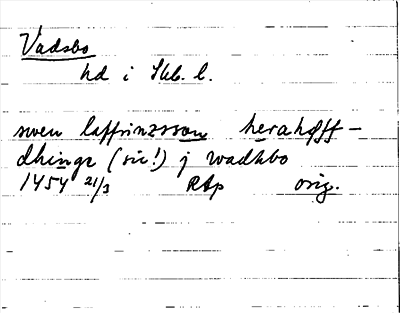 Vadsbo
hd i Skb. l.
swen laffrinzsson herahøff-
dhinge (sic!) j wadsbo
1454 21/3 RAp orig.